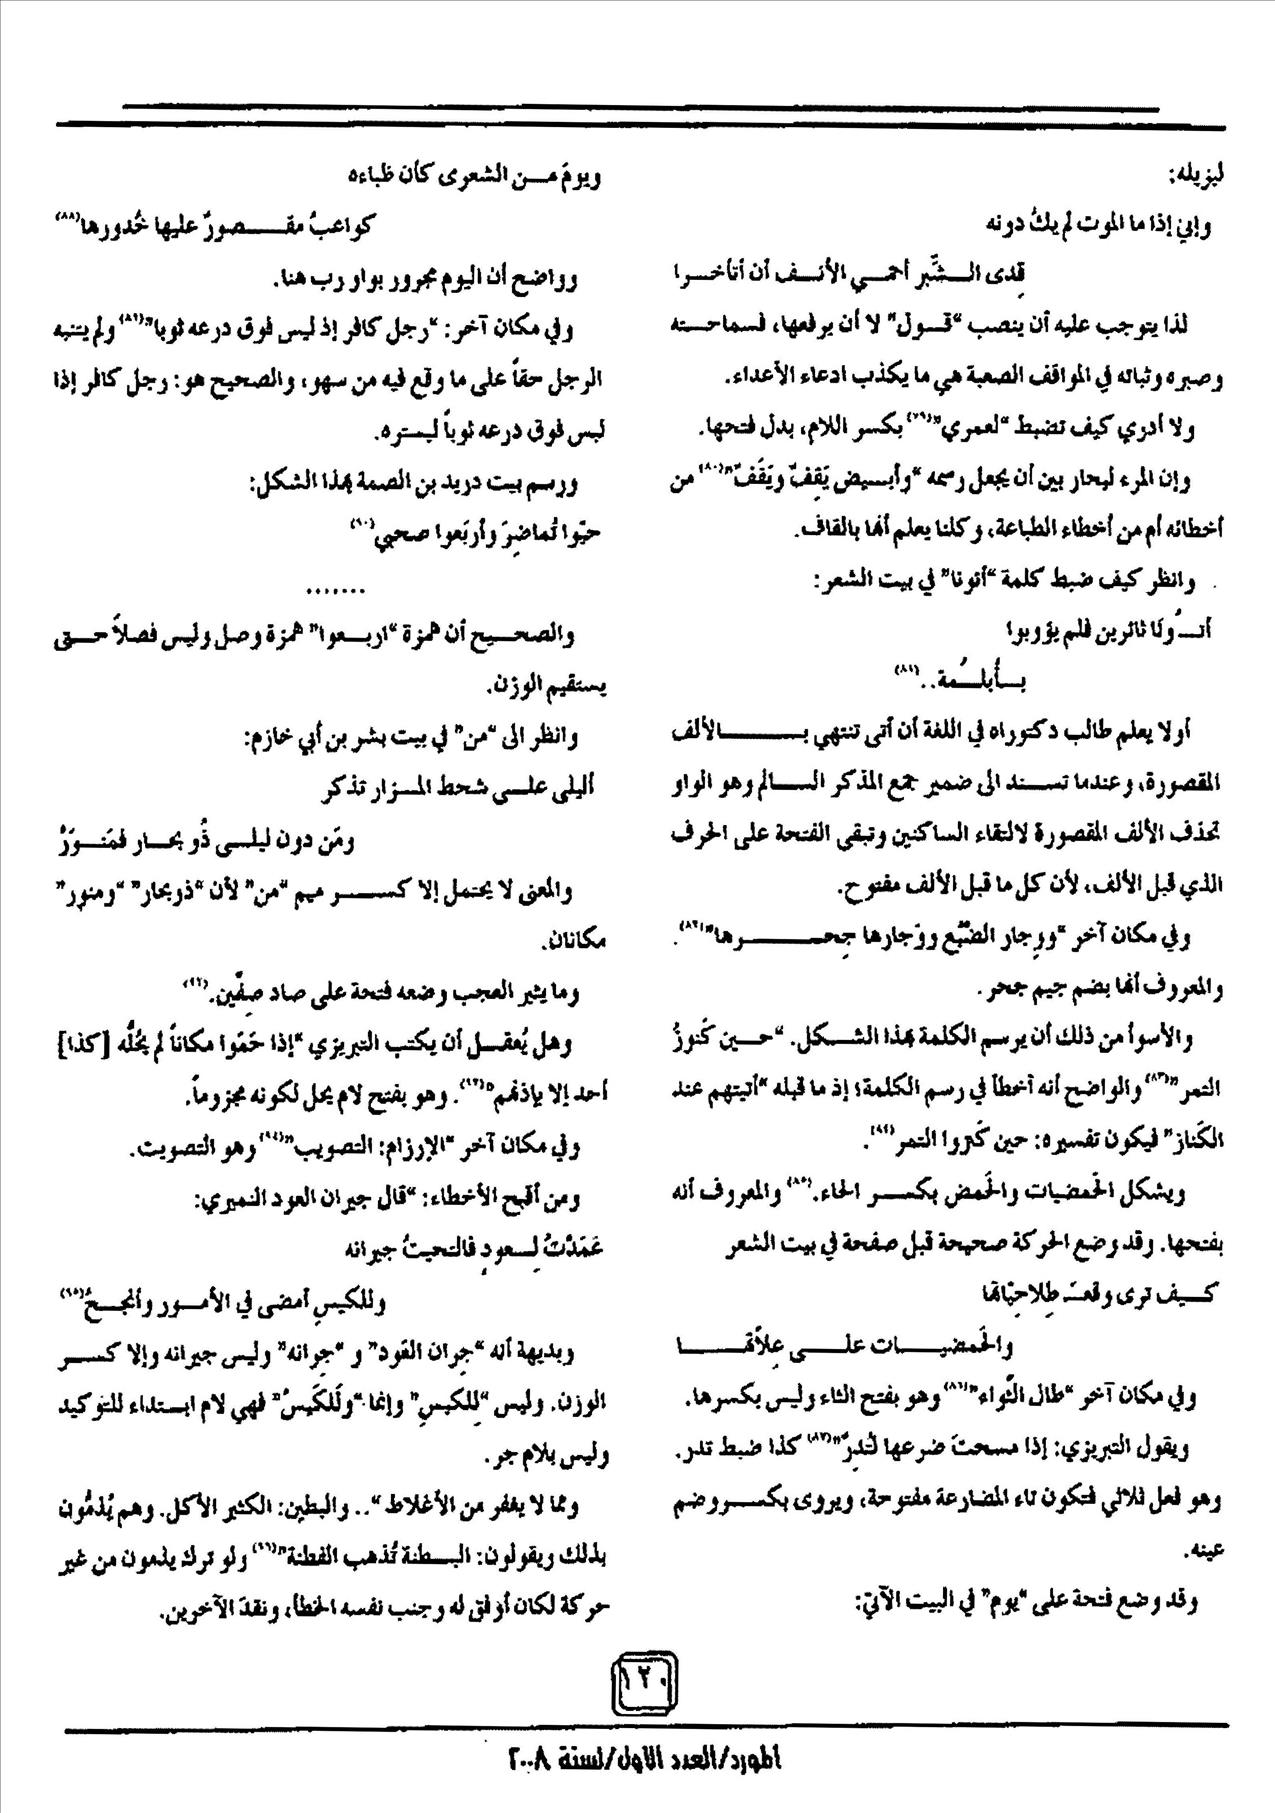 ليزيله:
وإني إذا ما الموت لم يكُ دونه
قِدى الشِّبر أحمي الأنف أن أتأخرا
لذا يتوجب عليه أن ينصب "قول" لا أن يرفعها، فسماحته
وصبره وثباته في المواقف الصعبة هي ما يكذب ادعاء الأعداء.
ولا أدري كيف تضبط "لعمري"(٧٩) بكسر اللام، بدل فتحها.
وإن المرء ليحار بين أن يجعل رسمه "وأبيض يَقِفٌ ويَقَفٌ"(٨٠) من
أخطائه أم من أخطاء الطباعة، وكلنا يعلم أنها بالقاف.
وانظر كيف ضبط كلمة "أتونا" في بيت الشعر:
أتـُونا ثائرين فلم يؤوبوا
بأبلُمة..(٨١)
أولا يعلم طالب دكتوراه في اللغة أن أتى تنتهي بالألف
المقصورة، وعندما تسند الى ضمير جمع المذكر السالم وهو الواو
تحذف الألف المقصورة لالتقاء الساكنين وتبقى الفتحة على الحرف
الذي قبل الألف، لأن كل ما قبل الألف مفتوح.
وفي مكان آخر "ووِجار الضَّبُع ووَجارها جِحرها"(٨٢).
والمعروف أنها بضم جيم جحر.
والأسوأ من ذلك أن يرسم الكلمة بهذا الشكل. "حين كَنوزُ
التمر"(٨٣) والواضح أنه أخطأ في رسم الكلمة؛ إذ ما قبله "أتيتهم عند
الكَناز" فيكون تفسيره: حين كَنزوا التمر(٨٤).
ويشكل الحَمضيات والحَمض بكسر الحاء.(٨٥) والمعروف أنه
بفتحها. وقد وضع الحركة صحيحة قبل صفحة في بيت الشعر
كيف ترى وقعـَ طِلاحِيّاتها
والحَمضيات على عِلاّتها
وفي مكان آخر "طال الثِّواء"(٨٦) وهو بفتح الثاء وليس بكسرها.
ويقول التبريزي: إذا مسحتَ ضرعها لتُدِرَّ"(٨٧) كذا ضبط تدر.
وهو فعل ثلاثي فتكون تاء المضارعة مفتوحة، ويروى بكسر وضم
عينه.
وقد وضع فتحة على "يوم" في البيت الآتي:
ويومَ من الشعرى كأن ظباءه
كواعبُ مقصورٌ عليها خُدورها(٨٨)
وواضح أن اليوم مجرور بواو رب هنا.
وفي مكان آخر: "رجل كافر إذ ليس فوق درعه ثوبا"(٨٩) ولم يتنبه
الرجل حقاً على ما وقع فيه من سهو، والصحيح هو: رجل كافر إذا
لبس فوق درعه ثوباً ليستره.
ورسم بيت دريد بن الصمة بهذا الشكل:
حيّوا تُماضِرَ وأربَعوا صحبي(٩٠)
.......
والصحيح أن همزة "اربعوا" همزة وصل وليس فصلاً حتى
يستقيم الوزن.
وانظر الى "من" في بيت بشر بن أبي خازم:
أليلى على شحط المزار تذكر
ومَن دون ليلى ذُو بحار فمَنوَرُ
والمعنى لا يحتمل إلا كسر ميم "من" لأن "ذو بحار" "ومنور"
مكانان.
وما يثير العجب وضعه فتحة على صاد صِفّين.(٩٢)
وهل يُعقل أن يكتب التبريزي "إذا حَمَوا مكاناً لم يحُلُّه [كذا]
أحد إلا بإذنهم"(٩٣). وهو بفتح لام يحل لكونه مجزوماً.
وفي مكان آخر "الإرزام: التصويب"(٩٤) وهو التصويت.
ومن أقبح الأخطاء: "قال جيران العود النميري:
عَمَدْتُ لِعودٍ فالتحيتُ جيرانه
وللكيسِ أمضى في الأمور وأنجحُ(٩٥)
وبديهة أنه "جِران العَود" و "جِرانه" وليس جيرانه وإلا كسر
الوزن. وليس "لِلكيسِ" وإنما "ولَلكَيسُ" فهي لام ابتداء للتوكيد
وليس بلام جر.
ومما لا يغفر من الأغلاط ".. والبطين: الكثير الأكل. وهم يُذمُّون
بذلك ويقولون: البطنة تُذهب الفطنة"(٩٦) ولو ترك يذمون من غير
حركة لكان أوفق له وجنب نفسه الخطأ، ونقدَ الآخرين.
١٢٠
المورد/العدد الأول/لسنة ٢٠٠٨